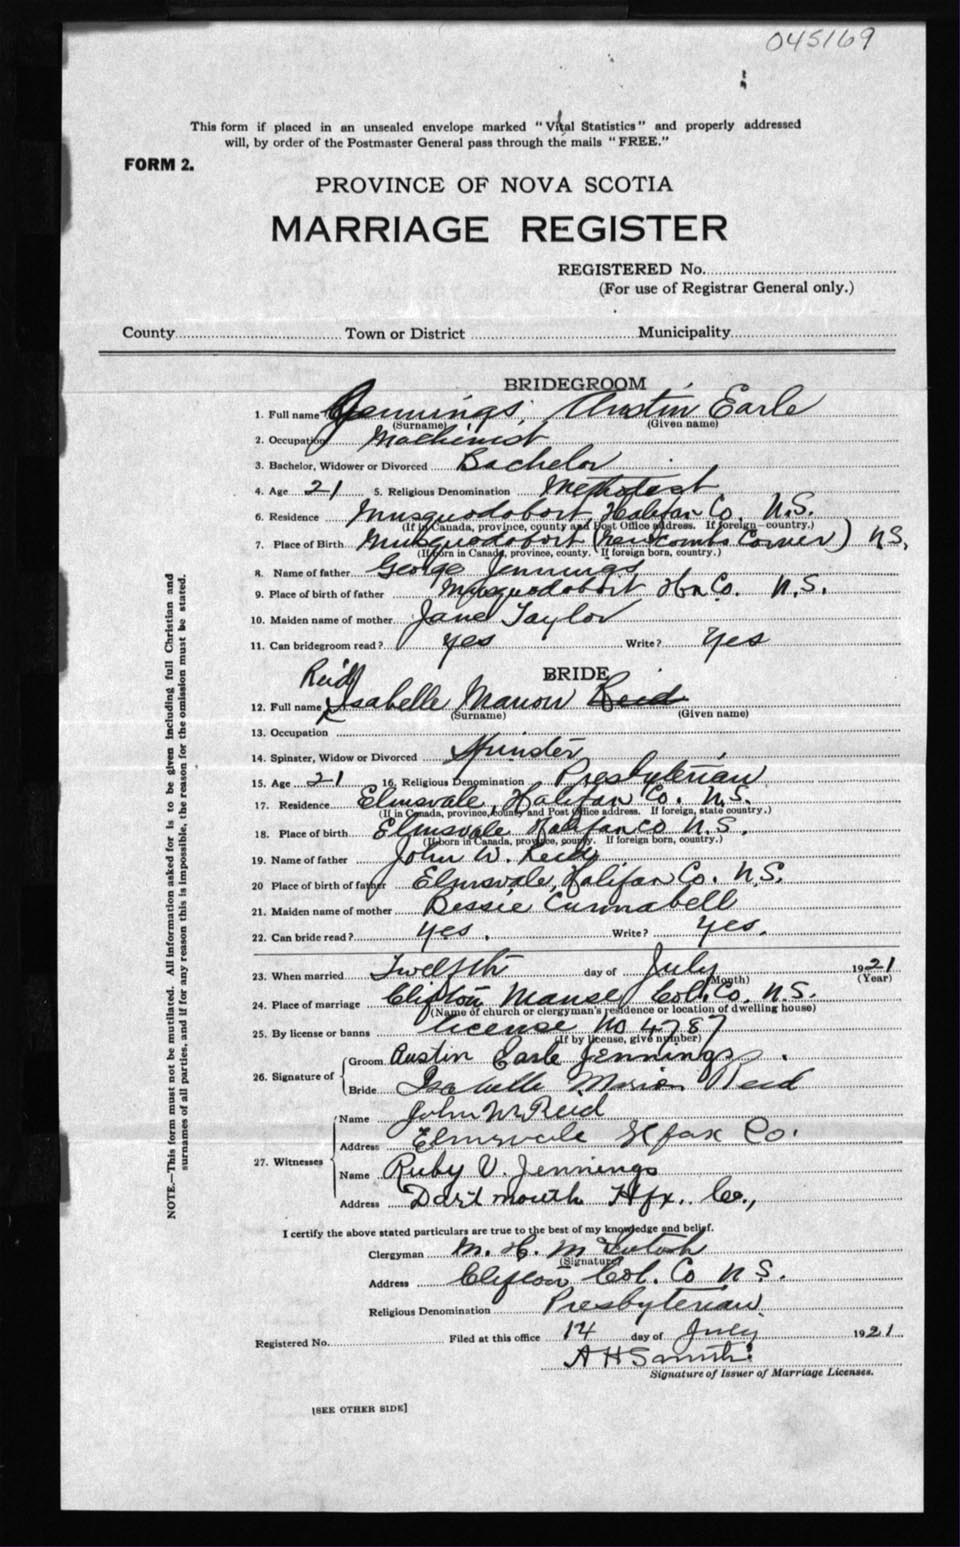 045169
This form if placed in an unsealed envelope marked "Vital Statistics" and properly addressed
will, by order of the Postmaster General pass through the mails "FREE."
FORM 2.
PROVINCE OF NOVA SCOTIA
MARRIAGE REGISTER
REGISTERED No.
(For use of Registrar General only.)
County Town or District Municipality
BRIDEGROOM
1. Full name Jennings, Austin Earle
(Surname) (Given name)
2. Occupation Machinist
3. Bachelor, Widower or Divorced Bachelor
4. Age 21 5. Religious Denomination Methodist
6. Residence Musquodoboit, Halifax Co. N.S.
(If in Canada, province, county and Post Office address. If foreign—country.)
7. Place of Birth Musquodoboit (Newcombs Corner) N.S.
(If born in Canada, province, county. If foreign born, country.)
8. Name of father George Jennings
9. Place of birth of father Musquodoboit Hx Co. N.S.
10. Maiden name of mother Jane Taylor
11. Can bridegroom read? yes Write? Yes
BRIDE
Reid
12. Full name Isabelle Marion Reid
(Surname) (Given name)
13. Occupation
14. Spinster, Widow or Divorced Spinster
15. Age 21 16. Religious Denomination Presbyterian
17. Residence Elmsvale, Halifax Co. N.S.
(If in Canada, province, county and Post Office address. If foreign, state country.)
18. Place of birth Elmsvale Halifax Co N.S.
(If born in Canada, province, county. If foreign born, country.)
19. Name of father John W. Reid
20 Place of birth of father Elmsvale, Halifax Co. N.S.
21. Maiden name of mother Bessie
22. Can bride read? yes. Write? yes.
23. When married Twelfth day of July 1921
(Month) (Year)
24. Place of marriage Clifton Manse Col. Co. N.S.
(Name of church or clergyman's residence or location of dwelling house)
25. By license or banns license No 4787
(If by license, give number)
26. Signature of Groom Austin Earle Jennings.
Bride Isabelle Marion Reid
27. Witnesses Name John W. Reid
Address Elmsvale Hfax Co.
Name Ruby V. Jennings
Address Dartmouth Hfx. Co.,
I certify the above stated particulars are true to the best of my knowledge and belief.
Clergyman M. H. McIntosh
(Signature)
Address Clifton Col. Co N S.
Religious Denomination Presbyterian.
Registered No. Filed at this office 14 day of July 1921
A H Smith
Signature of Issuer of Marriage Licenses.
[SEE OTHER SIDE]
NOTE.—This form must not be mutilated. All information asked for is to be given including full Christian and
surnames of all parties, and if for any reason this is impossible, the reason for the omission must be stated.